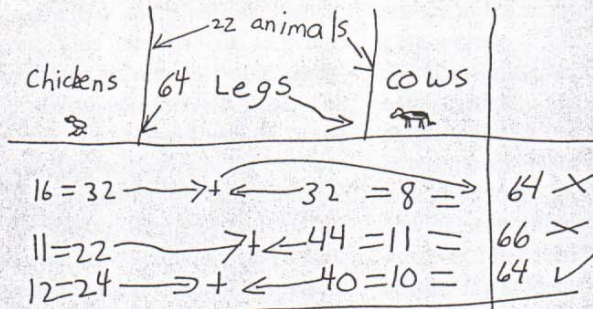 22 animals
Chickens 64 Legs cows
16 = 32 → + ← 32 = 8 = 64 ×
11=22 → + ← 44 = 11 = 66 ×
12=24 → + ← 40 = 10 = 64 ✓